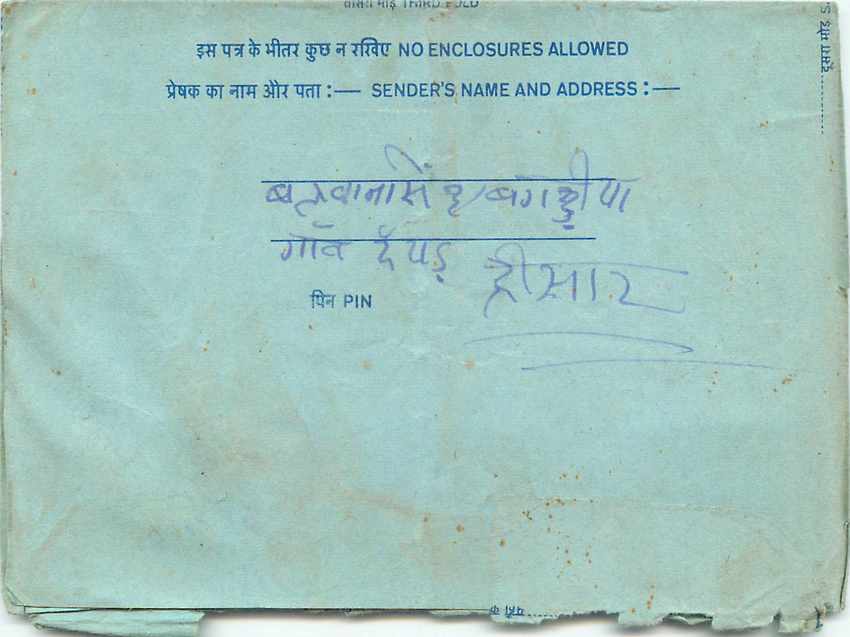 तीसरा मोड़ THIRD FOLD
इस पत्र के भीतर कुछ न रखिए NO ENCLOSURES ALLOWED
प्रेषक का नाम और पता :— SENDER'S NAME AND ADDRESS :—
बलवानसिंह बगड़ीया
गाँव
हीसार
पिन PIN
दूसरा मोड़ S